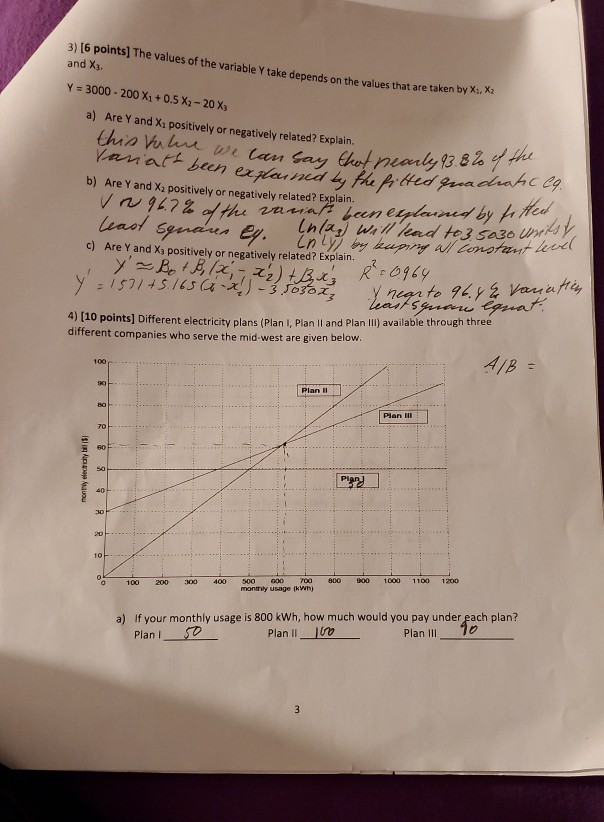 3) [6 points] The values of the variable Y take depends on the values that are taken by X₁, X₂
and X₃.
Y = 3000 - 200 X₁ + 0.5 X₂ – 20 X₃
a) Are Y and X₁ positively or negatively related? Explain.
this value we can say that nearly 93.8% of the
been explained by the fitted quadratic eq.
b) Are Y and X₂ positively or negatively related? Explain.
96.7% of the been explained by fitted
least squares eq. ln(x₃) will lead to 3.5030 units
ln(y) by keeping all constant level
c) Are Y and X₃ positively or negatively related? Explain.
R² = 0964
near to 96.4% variation
least square
4) [10 points] Different electricity plans (Plan I, Plan II and Plan III) available through three
different companies who serve the mid-west are given below.
A/B =
100
90
80
70
60
50
40
30
20
10
0
monthly electricity bill ($)
Plan II
Plan III
Plan I
50
0 100 200 300 400 500 600 700 800 900 1000 1100 1200
monthly usage (kWh)
a) If your monthly usage is 800 kWh, how much would you pay under each plan?
Plan I 50 Plan II 100 Plan III 90
3